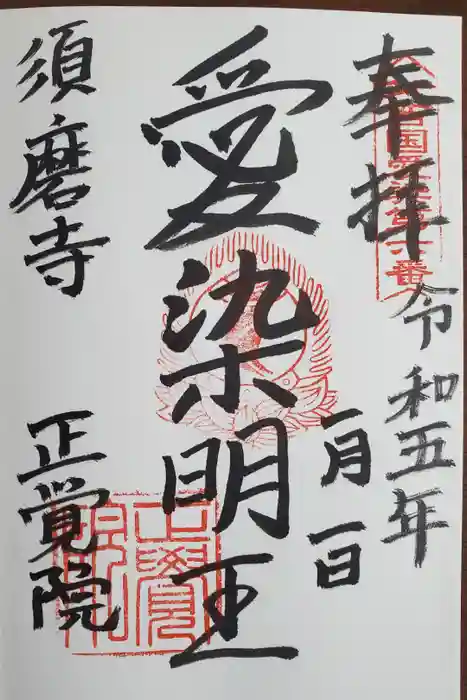 奉拝
令和五年
一月一日
愛染明王
須磨寺
正覚院